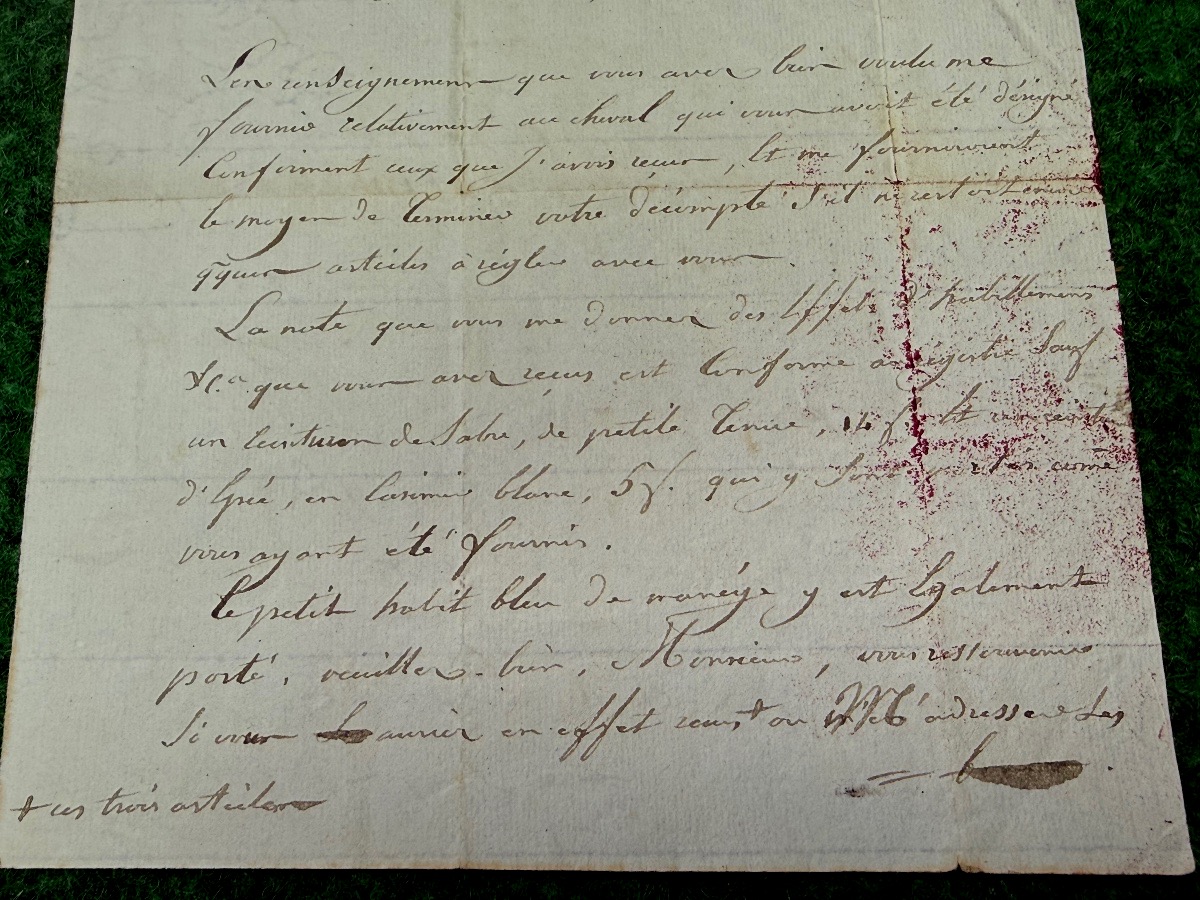 Les renseignemens que vous avez bien voulu me
fournir relativement au cheval qui vous avoit été désigné
Confirment ceux que J'avois reçus, Et me fourniroient
le moyen de Terminer votre décompte S'il n'existoit encore
qques articles à régler avec vous.
La note que vous me donnez des Effets d'habillemens
&c.a que vous avez reçus est Conforme au régistre Sauf
un Ceinturon de Sabre, de petite Tenue, 14 f. Et une
d'Epée, en Casimir blanc, 5 f. qui y Sont portés come
vous ayant été fournis.
Le petit habit bleu de manége y est Egalement
porté, veuillez-bien, Monsieur, vous ressouvenir
Si vous auriez en effet reçus + ou m'adresser Les
+ ces trois articles